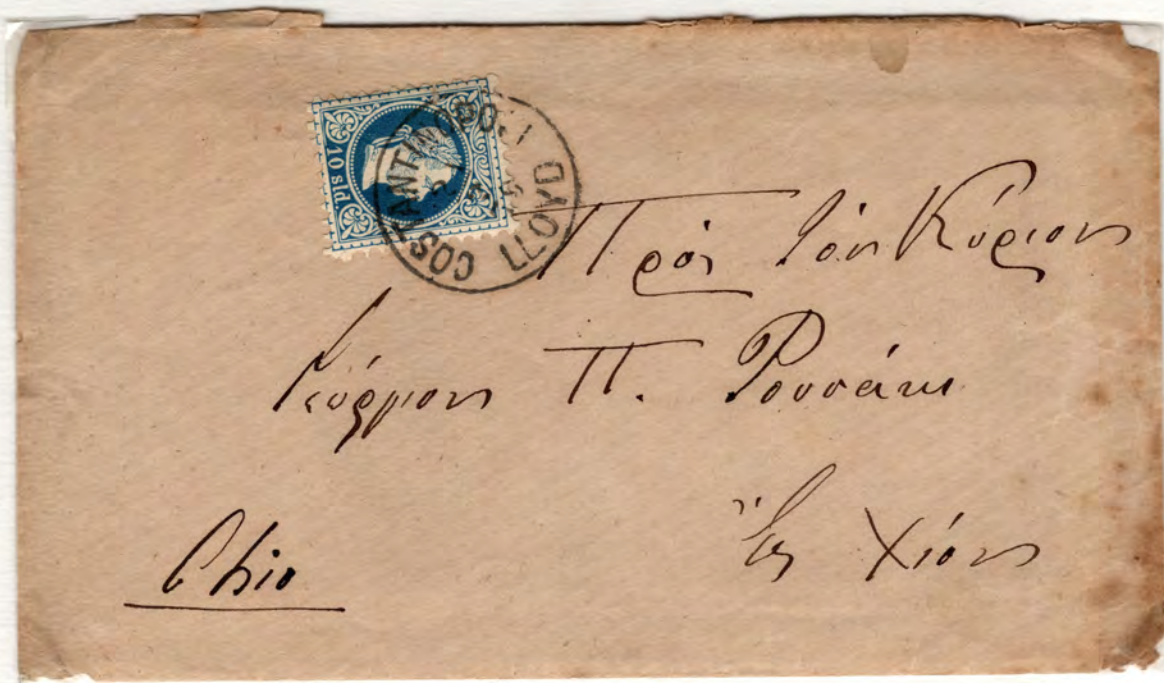 10 sld
COSTANTINOPOLI
LLOYD
Πρὸς τὸν Κύριον
Γεώργιον Π. Ρουσάκη
Εἰς Χίον
Chio